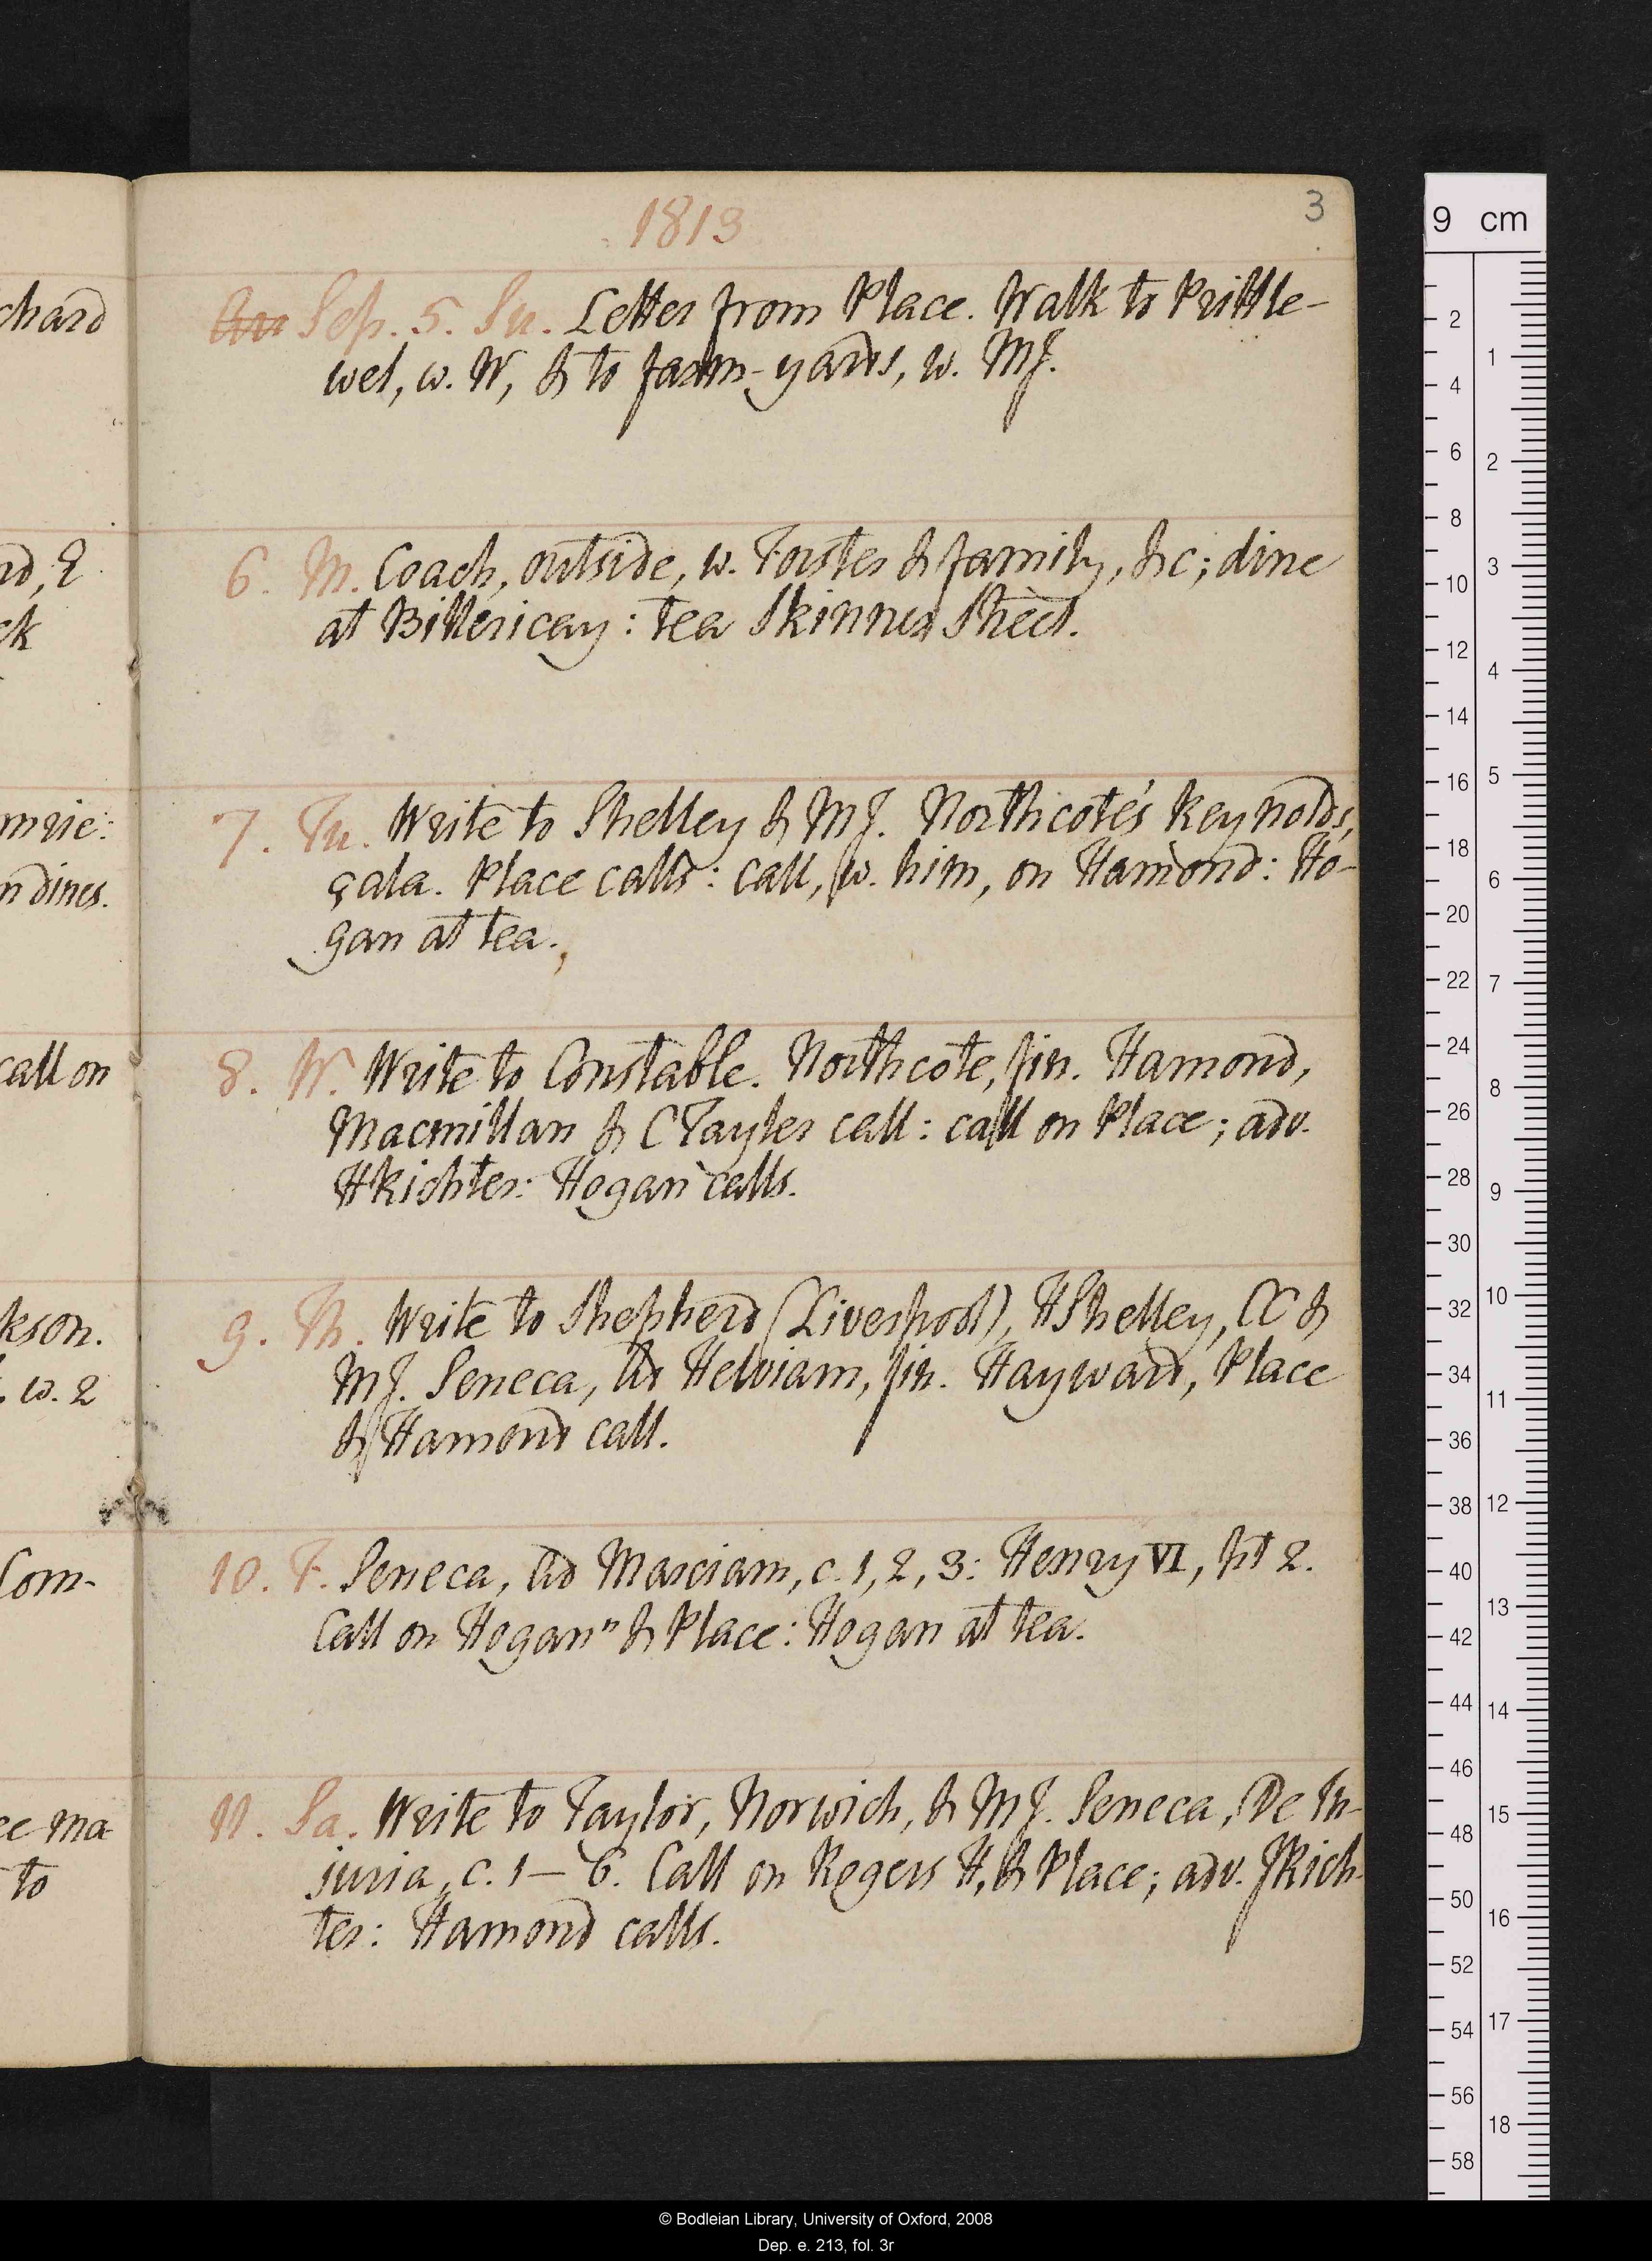 1813
3
Sep. 5. Su. Letter from Place. Walk to Prittle-
wel, w. W, & to farm-yards, w. MJ.
6. M. Coach, outside, w. Forster & family, &c; dine
at Billericay: tea Skinner Street.
7. Tu. Write to Shelley & MJ. Northcote's Reynolds,
çala. Place calls: call, w. him, on Hamond: Ho-
gan at tea.
8. W. Write to Constable. Northcote, fin. Hamond,
Macmillan & CTayler call: call on Place; adv.
HRichter: Hogan calls.
9. Th. Write to Shepherd (Liverpool), HShelley, CC &
MJ. Seneca, Ad Helviam, fin. Hayward, Place
& Hamond call.
10. F. Seneca, Ad Marciam, c. 1, 2, 3: Henry VI, pt 2.
Call on Hogan n & Place: Hogan at tea.
11. Sa. Write to Taylor, Norwich, & MJ. Seneca, De In-
juria, c. 1—6. Call on Rogers H, & Place; adv. JRich-
ter: Hamond calls.
chard
rd, 2
ck
mrie:
n dines.
call on
kson.
, w. 2
Com-
ce ma
to
9 cm
2
4
6
8
10
12
14
16
18
20
22
24
26
28
30
32
34
36
38
40
42
44
46
48
50
52
54
56
58
1
2
3
4
5
6
7
8
9
10
11
12
13
14
15
16
17
18
© Bodleian Library, University of Oxford, 2008
Dep. e. 213, fol. 3r